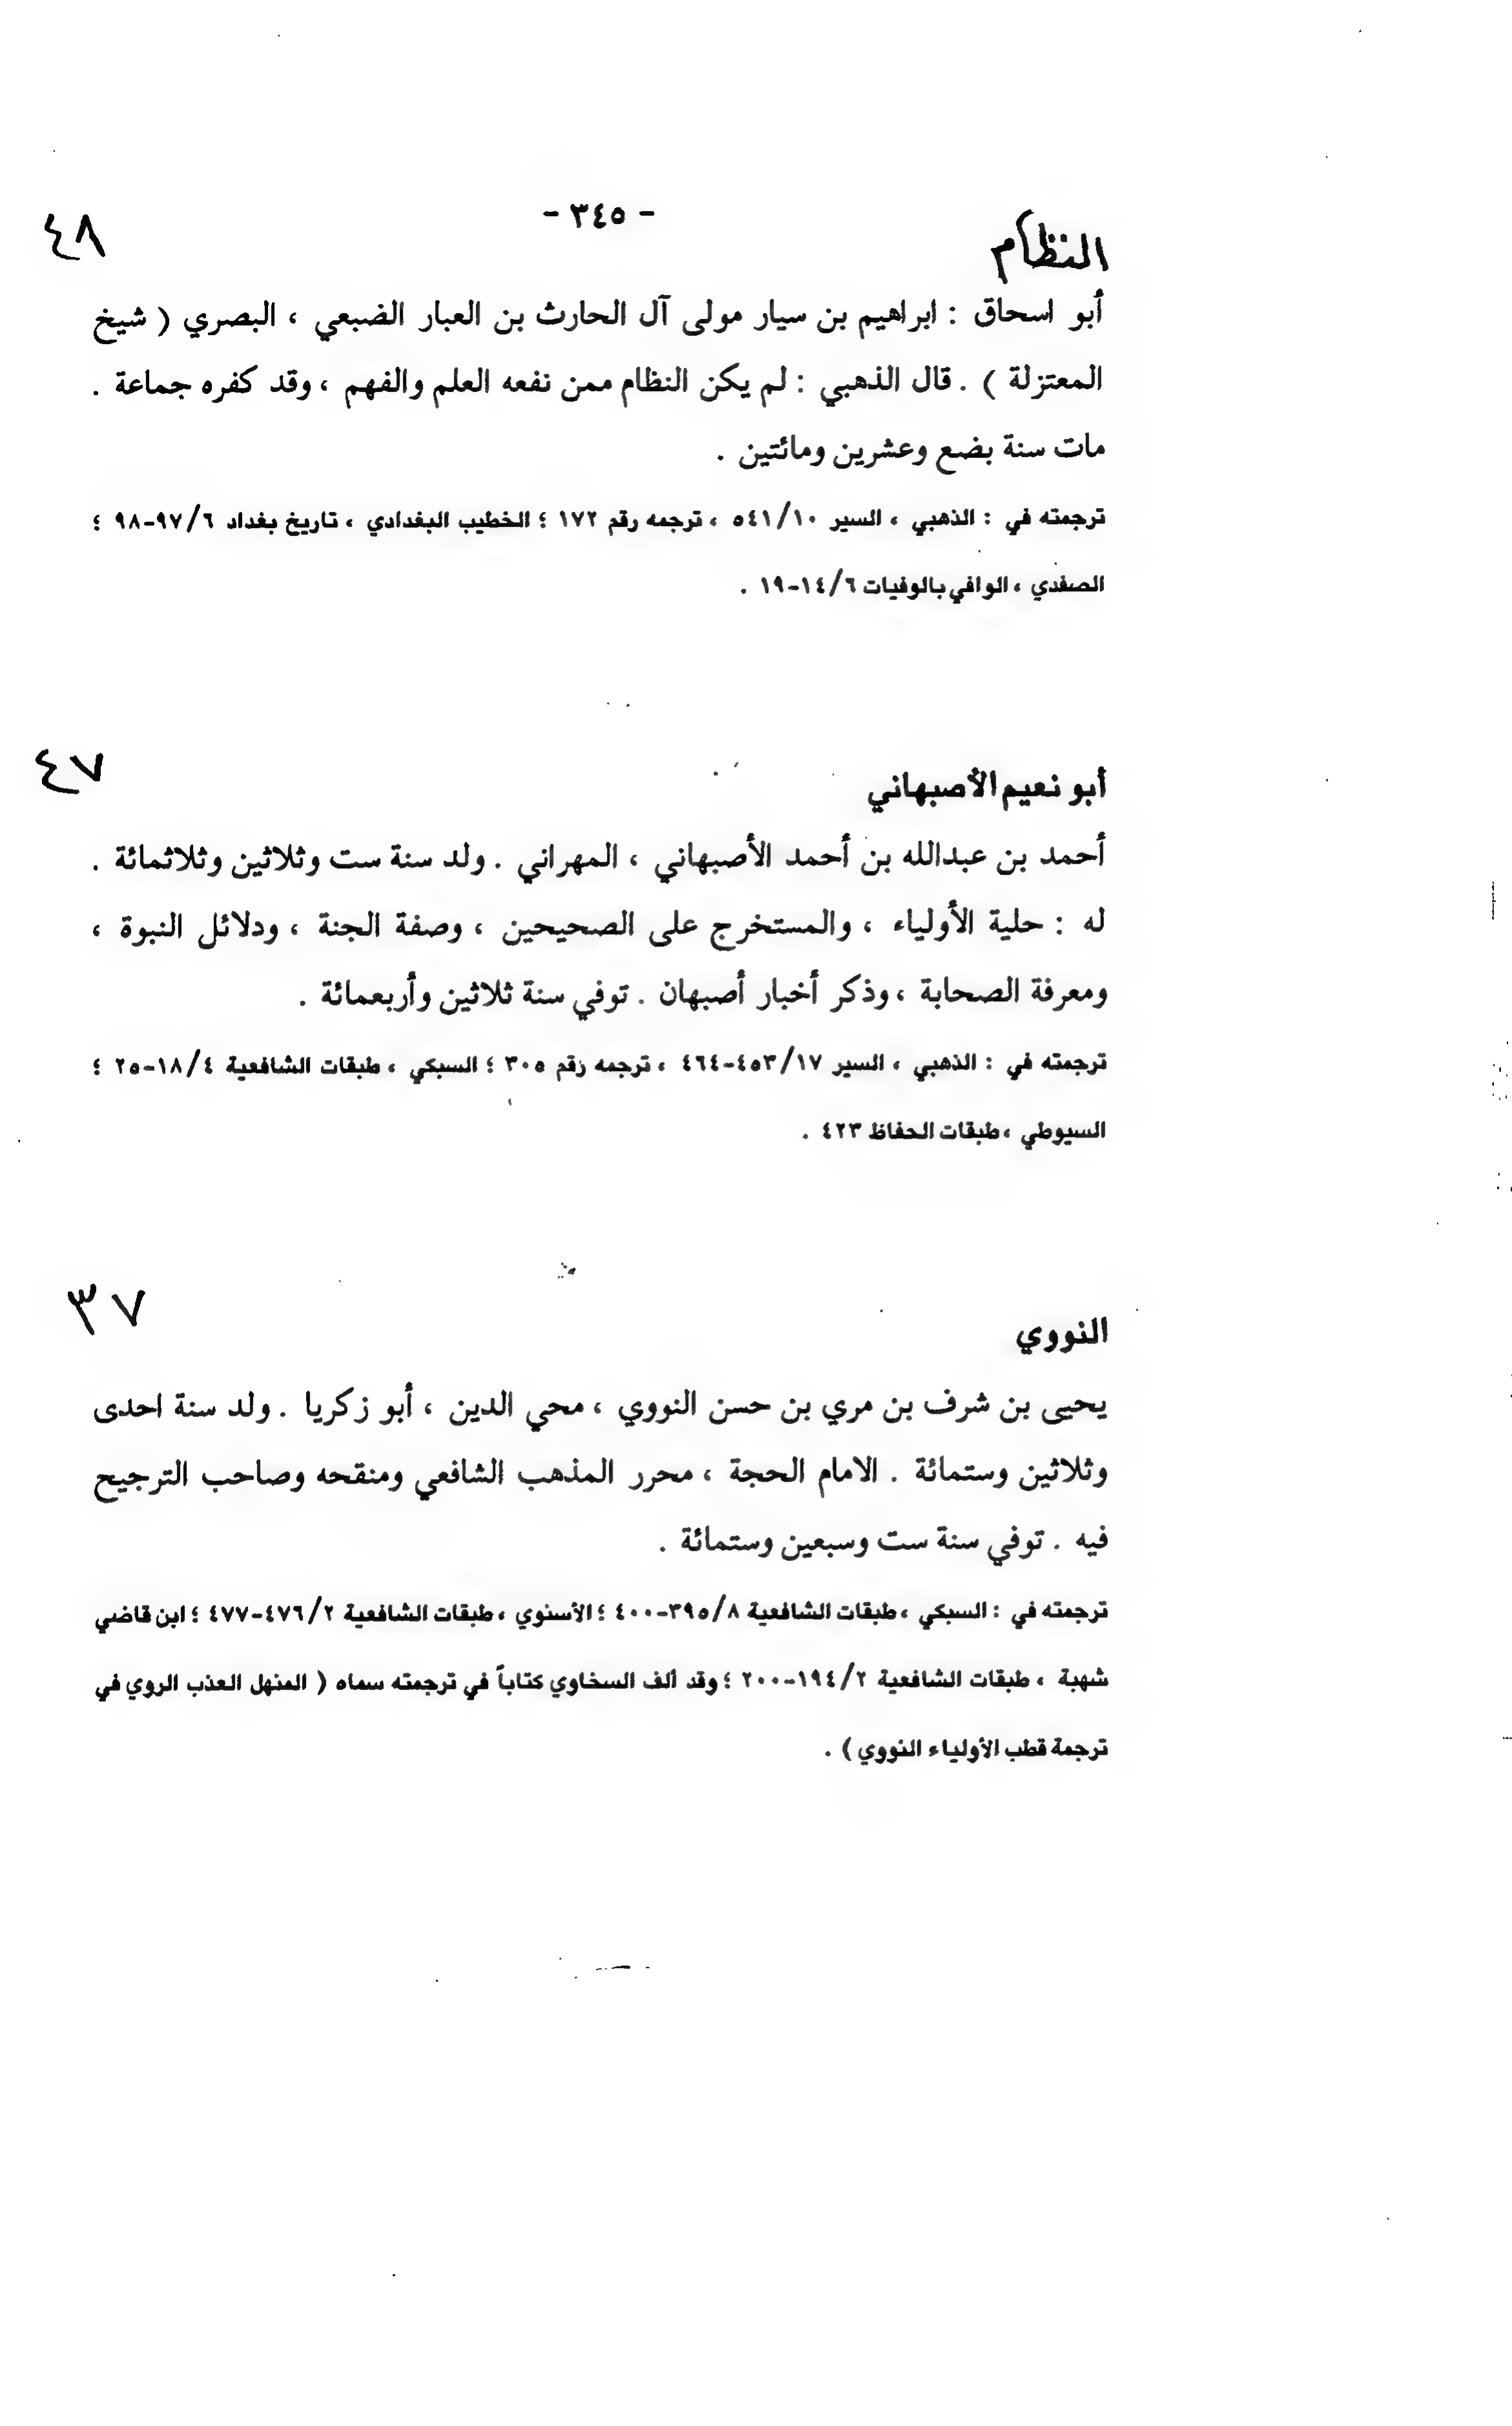 - ٣٤٥ -
النظام ٤٨
أبو اسحاق : ابراهيم بن سيار مولى آل الحارث بن العبار الضبعي ، البصري ( شيخ
المعتزلة ) . قال الذهبي : لم يكن النظام ممن نفعه العلم والفهم ، وقد كفره جماعة .
مات سنة بضع وعشرين ومائتين .
ترجمته في : الذهبي ، السير ٥٤١/١٠ ، ترجمه رقم ١٧٢ ؛ الخطيب البغدادي ، تاريخ بغداد ٩٧/٦-٩٨ ؛
الصفدي ، الوافي بالوفيات ١٤/٦-١٩ .
أبو نعيم الأصبهاني ٤٧
أحمد بن عبدالله بن أحمد الأصبهاني ، المهراني . ولد سنة ست وثلاثين وثلاثمائة .
له : حلية الأولياء ، والمستخرج على الصحيحين ، وصفة الجنة ، ودلائل النبوة ،
ومعرفة الصحابة ، وذكر أخبار أصبهان . توفي سنة ثلاثين وأربعمائة .
ترجمته في : الذهبي ، السير ٤٥٣/١٧-٤٦٤ ، ترجمه رقم ٣٠٥ ؛ السبكي ، طبقات الشافعية ١٨/٤-٢٥ ؛
السيوطي ، طبقات الحفاظ ٤٢٣ .
النووي ٣٧
يحيى بن شرف بن مري بن حسن النووي ، محي الدين ، أبو زكريا . ولد سنة احدى
وثلاثين وستمائة . الامام الحجة ، محرر المذهب الشافعي ومنقحه وصاحب الترجيح
فيه . توفي سنة ست وسبعين وستمائة .
ترجمته في : السبكي ، طبقات الشافعية ٣٩٥/٨-٤٠٠ ؛ الأسنوي ، طبقات الشافعية ٤٧٦/٢-٤٧٧ ؛ ابن قاضي
شهبة ، طبقات الشافعية ١٩٤/٢-٢٠٠ ؛ وقد ألف السخاوي كتاباً في ترجمته سماه ( المنهل العذب الروي في
ترجمة قطب الأولياء النووي ) .